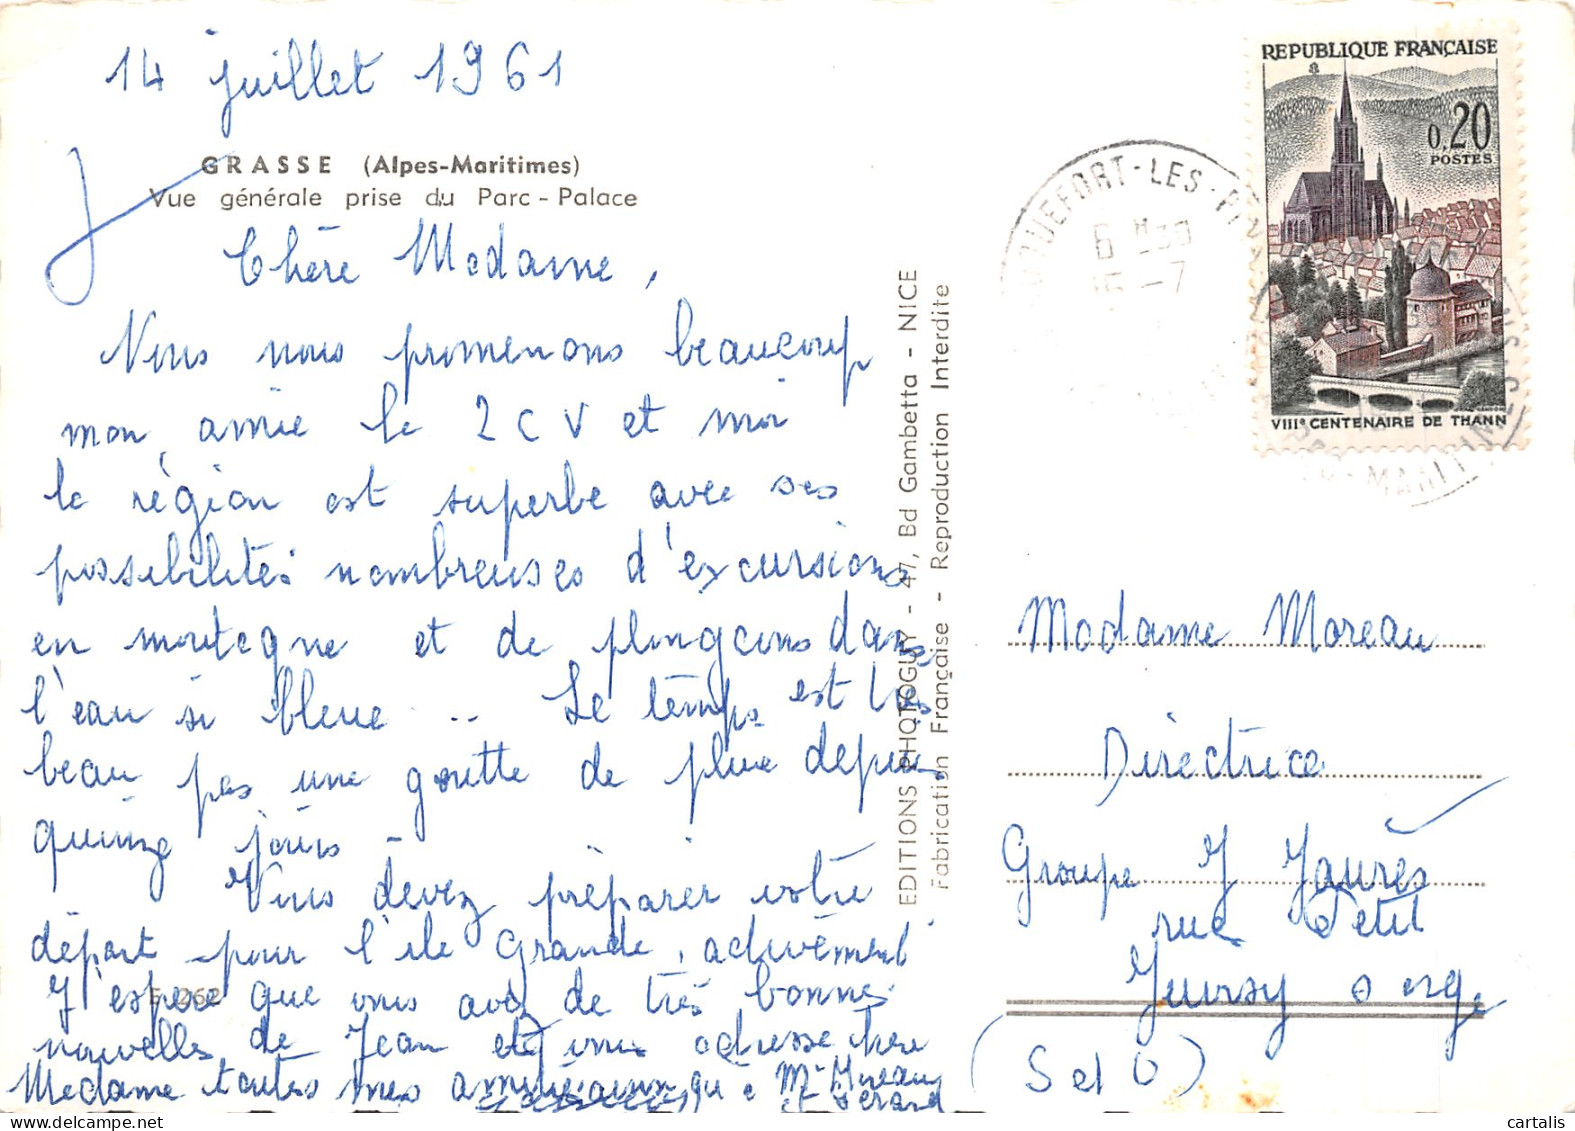 14 juillet 1961
GRASSE (Alpes-Maritimes)
Vue générale prise du Parc - Palace
Chère Madame,
Nous nous promenons beaucoup
mon amie la 2 CV et moi
la région est superbe avec ses
possibilités nombreuses d'excursions
en montagne et de plongeons dans
l'eau si bleue .. Le temps est très
beau pas une goutte de pluie depuis
quinze jours -
Vous devez préparer votre
départ pour l'ile Grande, activement
J'espère que vous avez de très bonnes
nouvelles de Jean et vous adresse chère
Madame toutes mes amitiés ainsi qu'à Mr Moreau
et Gérard
E 262
EDITIONS PHOTOGUY - 47, Bd Gambetta - NICE
Fabrication Française - Reproduction Interdite
REPUBLIQUE FRANÇAISE
0,20
POSTES
VIIIe CENTENAIRE DE THANN
ROQUEFORT-LES-PI
6 H30
15 -7
MARITIMES
Madame Moreau
Directrice
Groupe J Jaurès
rue Petit
Juvisy s orge
(S et O)
cartalis